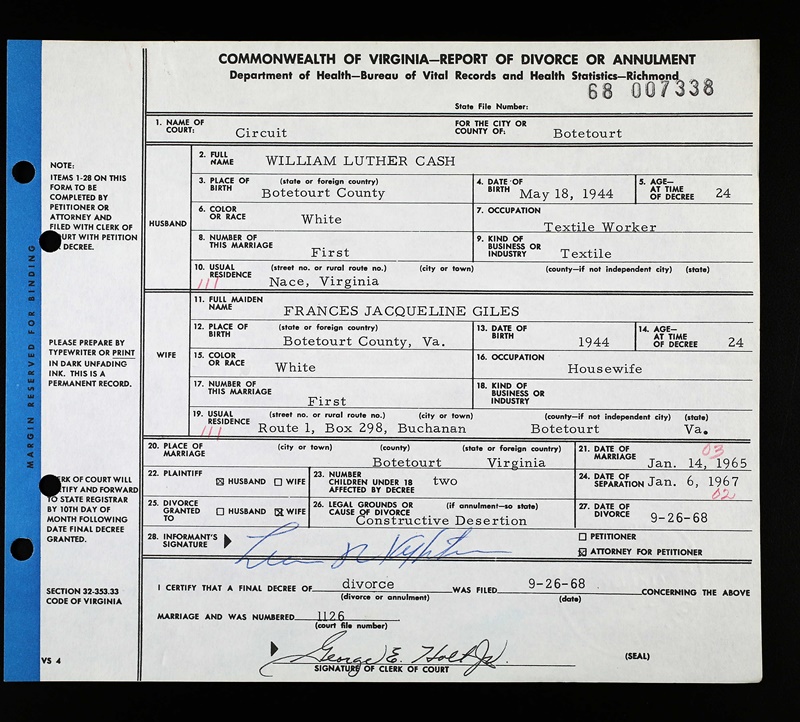 COMMONWEALTH OF VIRGINIA—REPORT OF DIVORCE OR ANNULMENT
Department of Health—Bureau of Vital Records and Health Statistics—Richmond
68 007338
State File Number:
1. NAME OF COURT: Circuit FOR THE CITY OR COUNTY OF: Botetourt
HUSBAND
2. FULL NAME WILLIAM LUTHER CASH
3. PLACE OF BIRTH (state or foreign country) Botetourt County 4. DATE OF BIRTH May 18, 1944 5. AGE—AT TIME OF DECREE 24
6. COLOR OR RACE White 7. OCCUPATION Textile Worker
8. NUMBER OF THIS MARRIAGE First 9. KIND OF BUSINESS OR INDUSTRY Textile
10. USUAL RESIDENCE (street no. or rural route no.) (city or town) (county—if not independent city) (state)
111 Nace, Virginia
WIFE
11. FULL MAIDEN NAME FRANCES JACQUELINE GILES
12. PLACE OF BIRTH (state or foreign country) Botetourt County, Va. 13. DATE OF BIRTH 1944 14. AGE—AT TIME OF DECREE 24
15. COLOR OR RACE White 16. OCCUPATION Housewife
17. NUMBER OF THIS MARRIAGE First 18. KIND OF BUSINESS OR INDUSTRY
19. USUAL RESIDENCE (street no. or rural route no.) (city or town) (county—if not independent city) (state)
111 Route 1, Box 298, Buchanan Botetourt Va.
20. PLACE OF MARRIAGE (city or town) (county) Botetourt (state or foreign country) Virginia 21. DATE OF MARRIAGE 03 Jan. 14, 1965
22. PLAINTIFF ☒ HUSBAND ☐ WIFE 23. NUMBER CHILDREN UNDER 18 AFFECTED BY DECREE two 24. DATE OF SEPARATION Jan. 6, 1967
02
25. DIVORCE GRANTED TO ☐ HUSBAND ☒ WIFE 26. LEGAL GROUNDS OR CAUSE OF DIVORCE (if annulment—so state) Constructive Desertion 27. DATE OF DIVORCE 9-26-68
28. INFORMANT'S SIGNATURE ☐ PETITIONER
☒ ATTORNEY FOR PETITIONER
I CERTIFY THAT A FINAL DECREE OF divorce WAS FILED 9-26-68 CONCERNING THE ABOVE
(divorce or annulment) (date)
MARRIAGE AND WAS NUMBERED 1126
(court file number)
George E. Holt Jr.
SIGNATURE OF CLERK OF COURT (SEAL)
MARGIN RESERVED FOR BINDING
NOTE:
ITEMS 1-28 ON THIS
FORM TO BE
COMPLETED BY
PETITIONER OR
ATTORNEY AND
FILED WITH CLERK OF
COURT WITH PETITION
DECREE.
PLEASE PREPARE BY
TYPEWRITER OR PRINT
IN DARK UNFADING
INK. THIS IS A
PERMANENT RECORD.
CLERK OF COURT WILL
CERTIFY AND FORWARD
TO STATE REGISTRAR
BY 10TH DAY OF
MONTH FOLLOWING
DATE FINAL DECREE
GRANTED.
SECTION 32-353.33
CODE OF VIRGINIA
VS 4